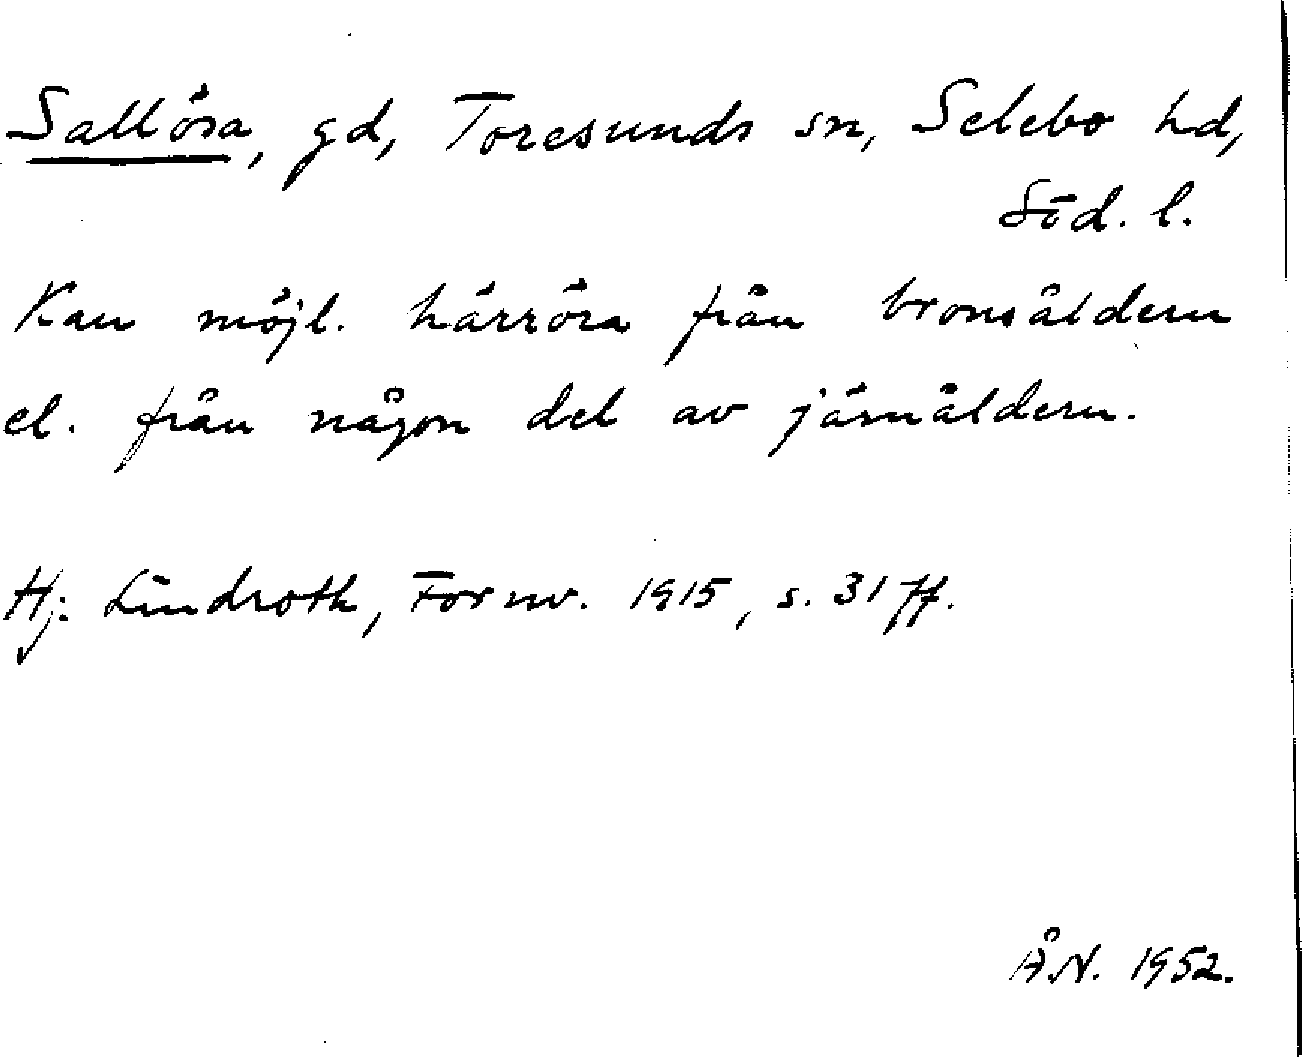 Sallösa, gd, Toresunds sn, Selebo hd,
Söd. l.
Kan möjl. härröra från bronsåldern
el. från någon del av järnåldern.
Hj. Lindroth, Fornv. 1915, s. 31 ff.
Å.N. 1952.